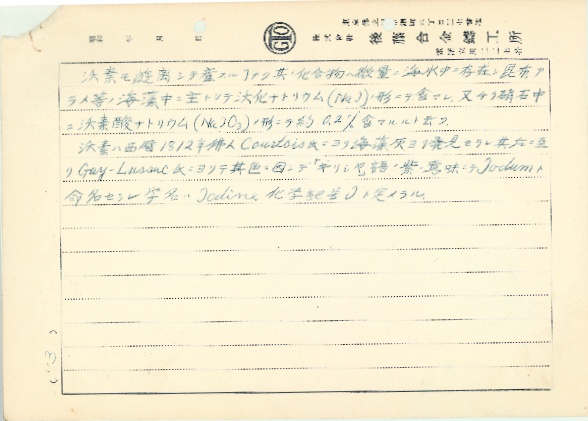 昭和 年 月 日
株式会社 後藤合金鑄工所
沃素モ遊離シテ産スルコトナク其ノ化合物ハ微量ニ海水中ニ存在シ昆布ア
ラメ等ノ海藻中ニ主トシテ沃化ナトリウム(NaJ)ノ形ニテ含マレ,又チリ硝石中
ニ沃素酸ナトリウム(NaJO3)ノ形ニテ約0.2%含マルルト云フ.
沃素ハ西暦1812年佛人Courtois氏ニヨリ海藻灰ヨリ発見セラレ其後ニ至
リGay-Lussac氏ニヨリテ其色ニ因ンデ「ギリシヤ語ノ紫ノ意味ニテJodumト
命名セラレ英名ハIodine化学記号Jト定メラル.
(3)